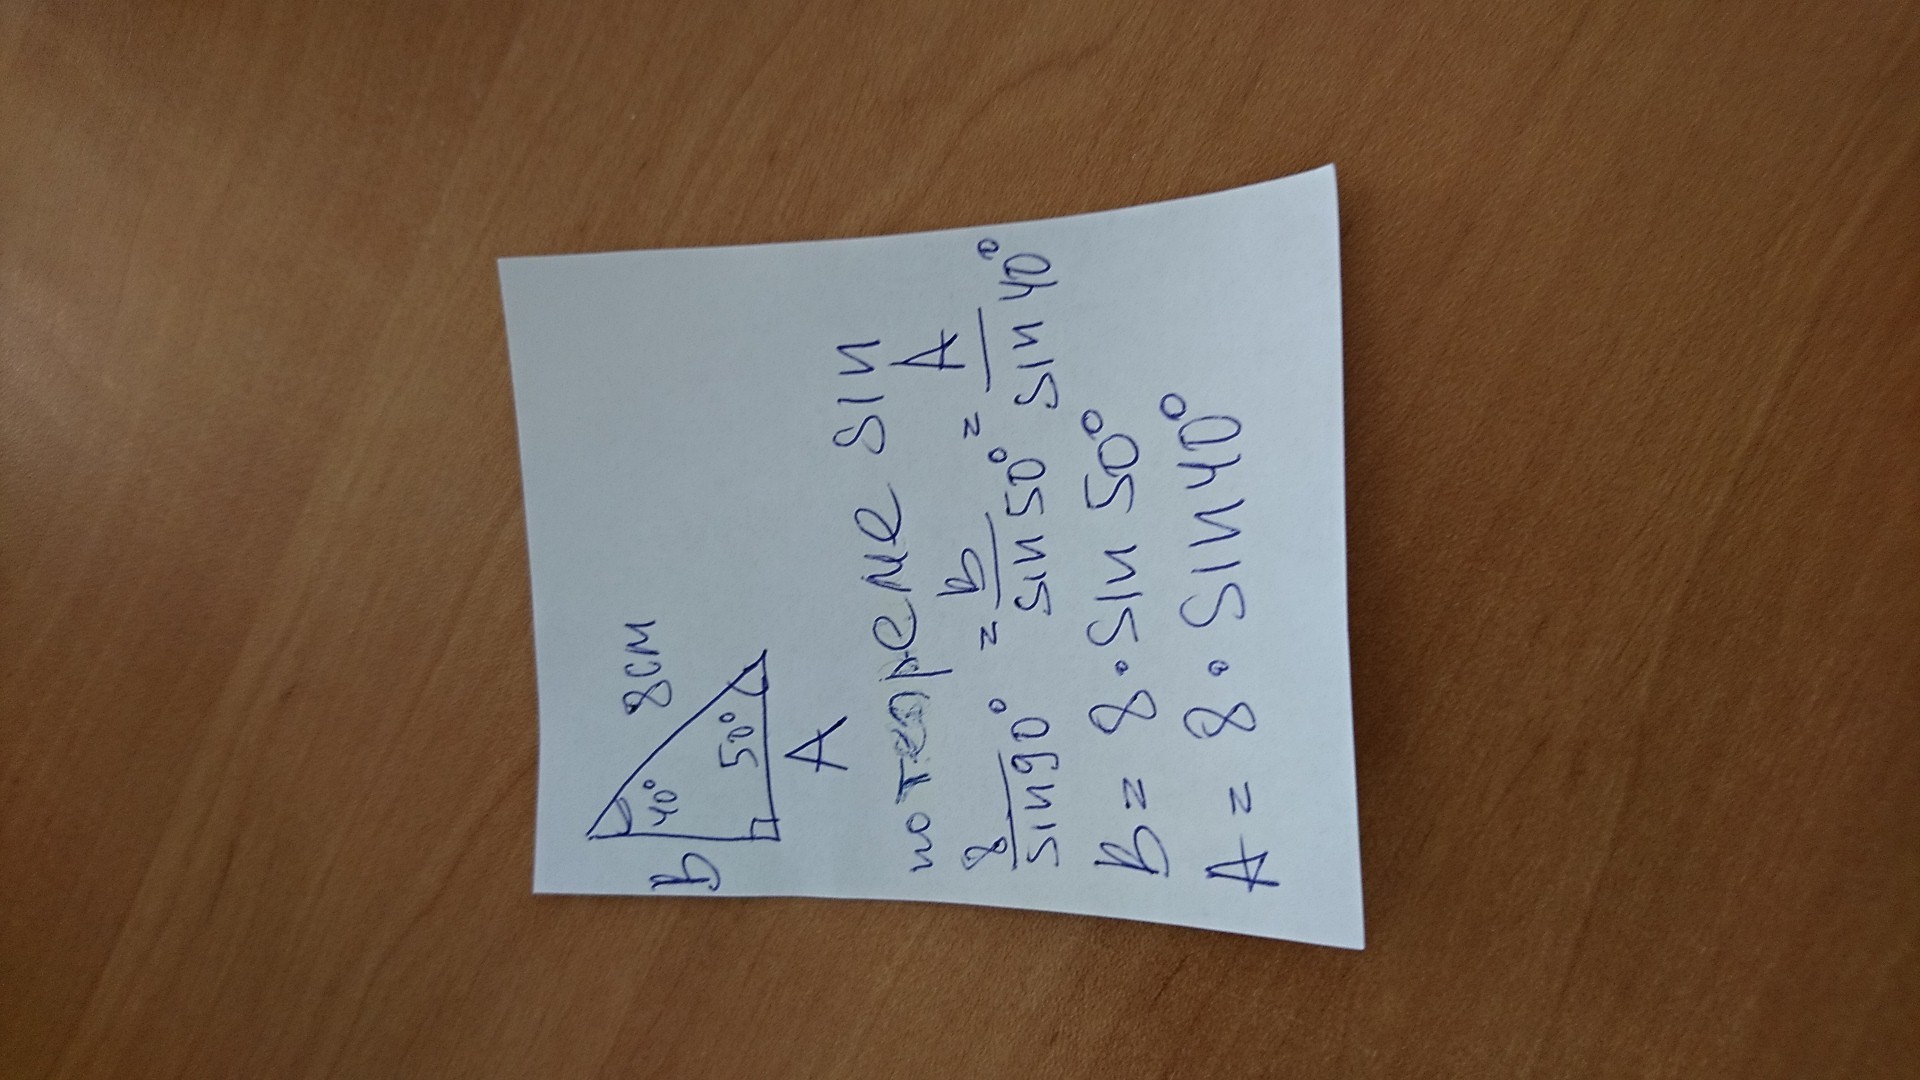 8см
40°
B
50°
A
по теореме sin
8/sin90° = B/sin50° = A/sin40°
B = 8 · sin 50°
A = 8 · sin 40°